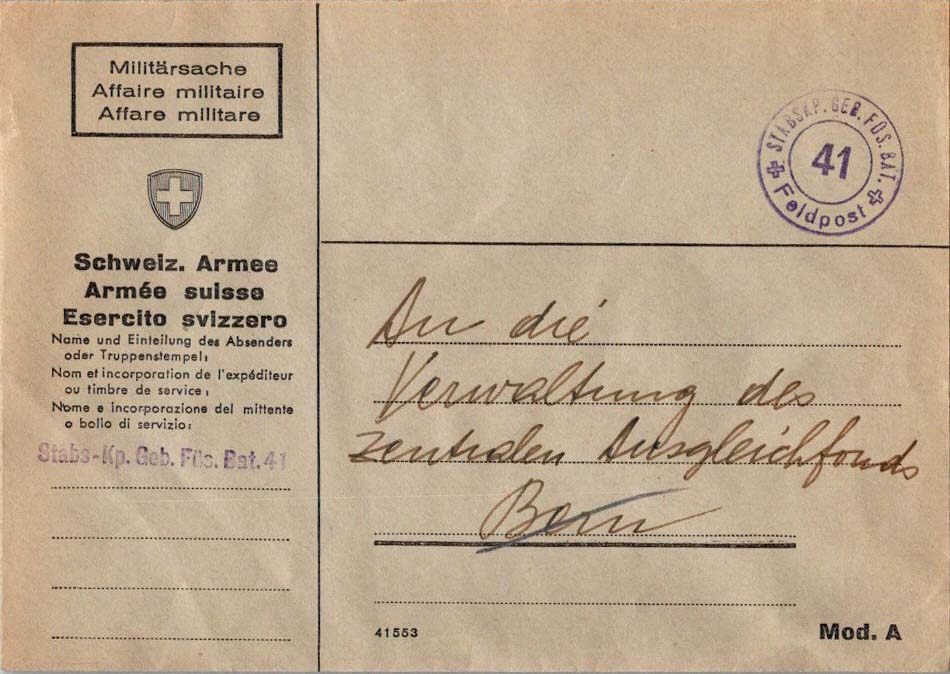 Militärsache
Affaire militaire
Affare militare
Schweiz. Armee
Armée suisse
Esercito svizzero
Name und Einteilung des Absenders
oder Truppenstempel:
Nom et incorporation de l'expéditeur
ou timbre de service:
Nome e incorporazione del mittente
o bollo di servizio:
Stabs-Kp. Geb. Füs. Bat. 41
STABSKP. GEB. FÜS. BAT.
41
Feldpost
An die
Verwaltung des
zentralen Ausgleichfonds
Bern
41553
Mod. A